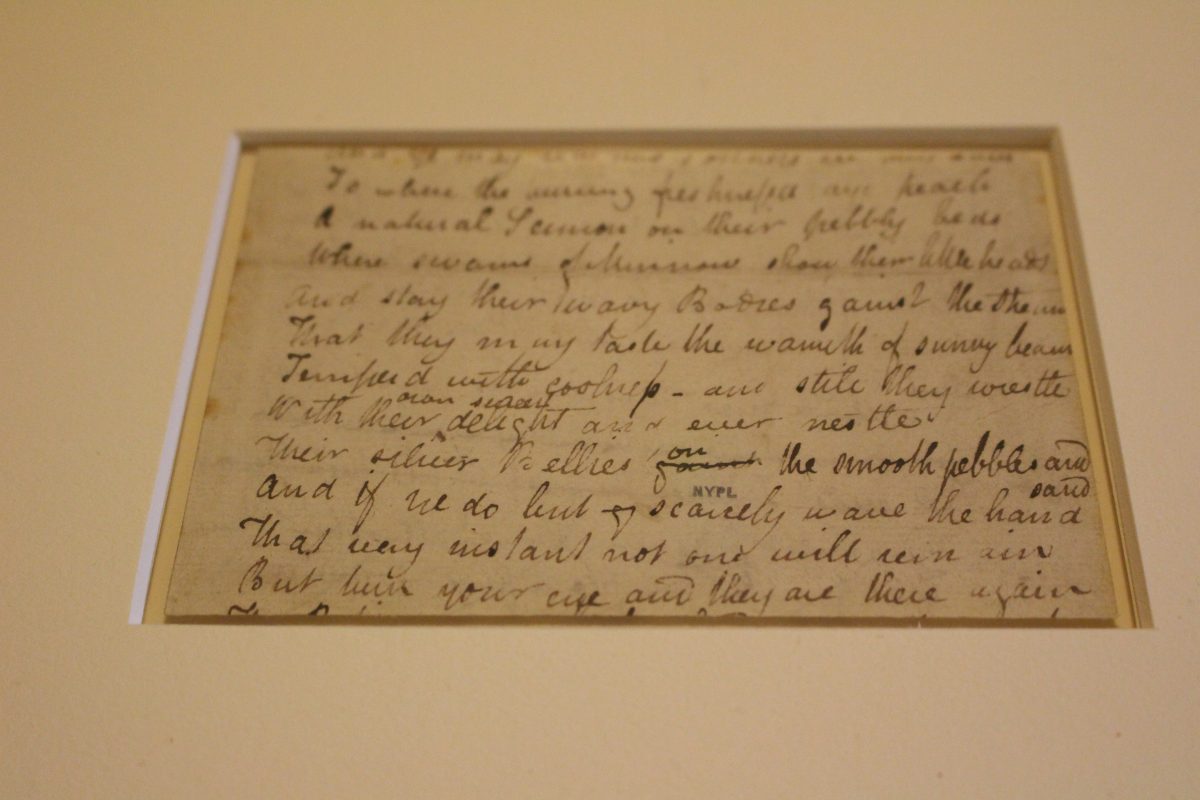 To where the freshnesses aye preach
A natural Sermon on their pebbly beds
Where swarms of Minnows show their little heads
And stay their wavy Bodies gainst the stream
That they may taste the warmth of sunny beam
Temper'd with coolness - and still they wrestle
own sweet
With their delight and ever nestle
on
Their silver Bellies gainst the smooth pebbles and
sand
NYPL
And if ye do but scarcely wave the hand
That very instant not one will remain
But turn your eye and they are there again